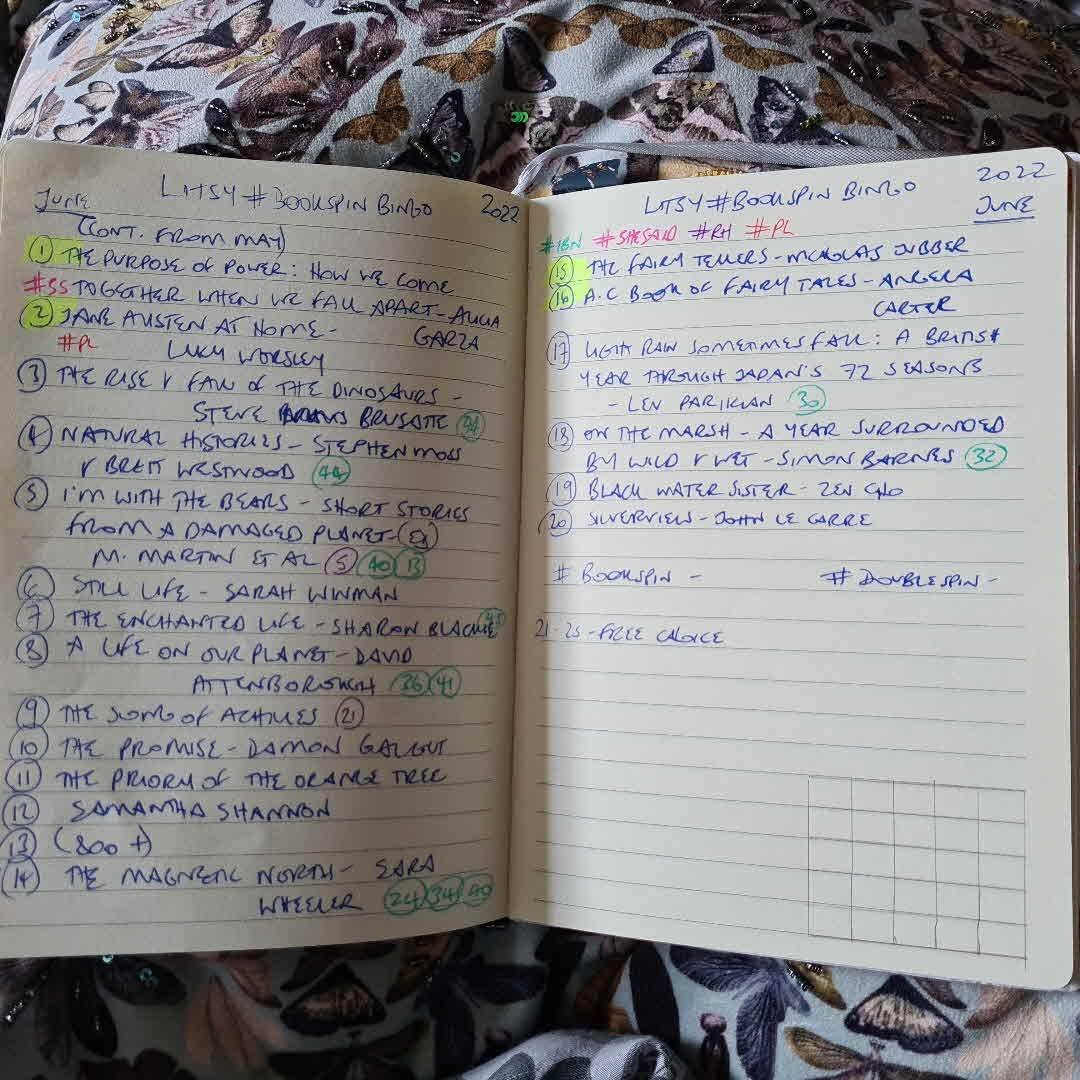 JUNE LITSY #BOOKSPIN BINGO 2022
(CONT. FROM MAY)
1 THE PURPOSE OF POWER: HOW WE COME
#SS TOGETHER WHEN WE FALL APART - ALICIA
GARZA
2 JANE AUSTEN AT HOME -
#PL LUCY WORSLEY
3 THE RISE & FALL OF THE DINOSAURS -
STEVE BRUSATTE
4 NATURAL HISTORIES - STEPHEN MOSS
& BRETT WESTWOOD 44
5 I'M WITH THE BEARS - SHORT STORIES
FROM A DAMAGED PLANET -
M. MARTIN ET AL 5 40 13
6 STILL LIFE - SARAH WINMAN
7 THE ENCHANTED LIFE - SHARON BLACKIE
8 A LIFE ON OUR PLANET - DAVID
ATTENBOROUGH 36 41
9 THE SONG OF ACHILLES 21
10 THE PROMISE - DAMON GALGUT
11 THE PRIORY OF THE ORANGE TREE
12 SAMANTHA SHANNON
13 (800+)
14 THE MAGNETIC NORTH - SARA
WHEELER 24 34 40
LITSY #BOOKSPIN BINGO 2022
JUNE
#IBN #SHESAID #RH #PL
15 THE FAIRY TELLERS - NICHOLAS JUBBER
16 A.C BOOK OF FAIRY TALES - ANGELA
CARTER
17 LIGHT RAIN SOMETIMES FALL: A BRITISH
YEAR THROUGH JAPAN'S 72 SEASONS
- LEV PARIKIAN 30
18 ON THE MARSH - A YEAR SURROUNDED
BY WILD & WET - SIMON BARNES 32
19 BLACK WATER SISTER - ZEN CHO
20 SILVERVIEW - JOHN LE CARRE
# BOOKSPIN - # DOUBLESPIN -
21-25 - FREE CHOICE